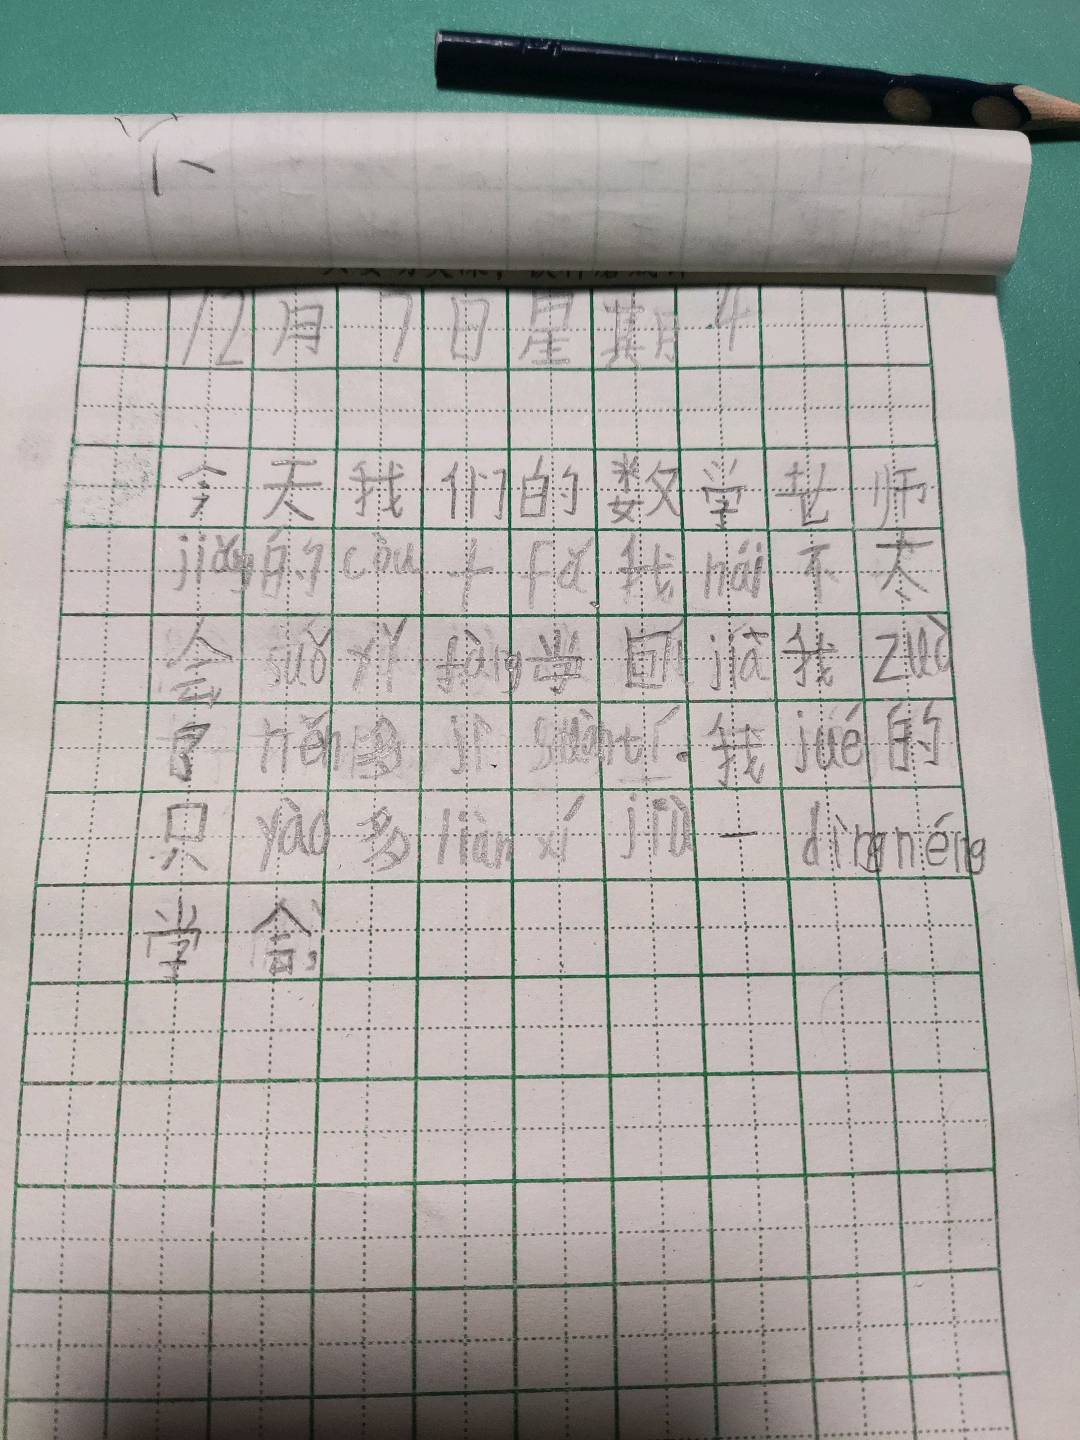 12月7日星期4
今天我们的数学老师
jiǎng的còu十fǎ,我hái不太
会suǒyǐ fàng学回jiā我zuò
了hěn多jì suàntí.我jué的
只yào多liàn xí jiù一dìngnéng
学会,